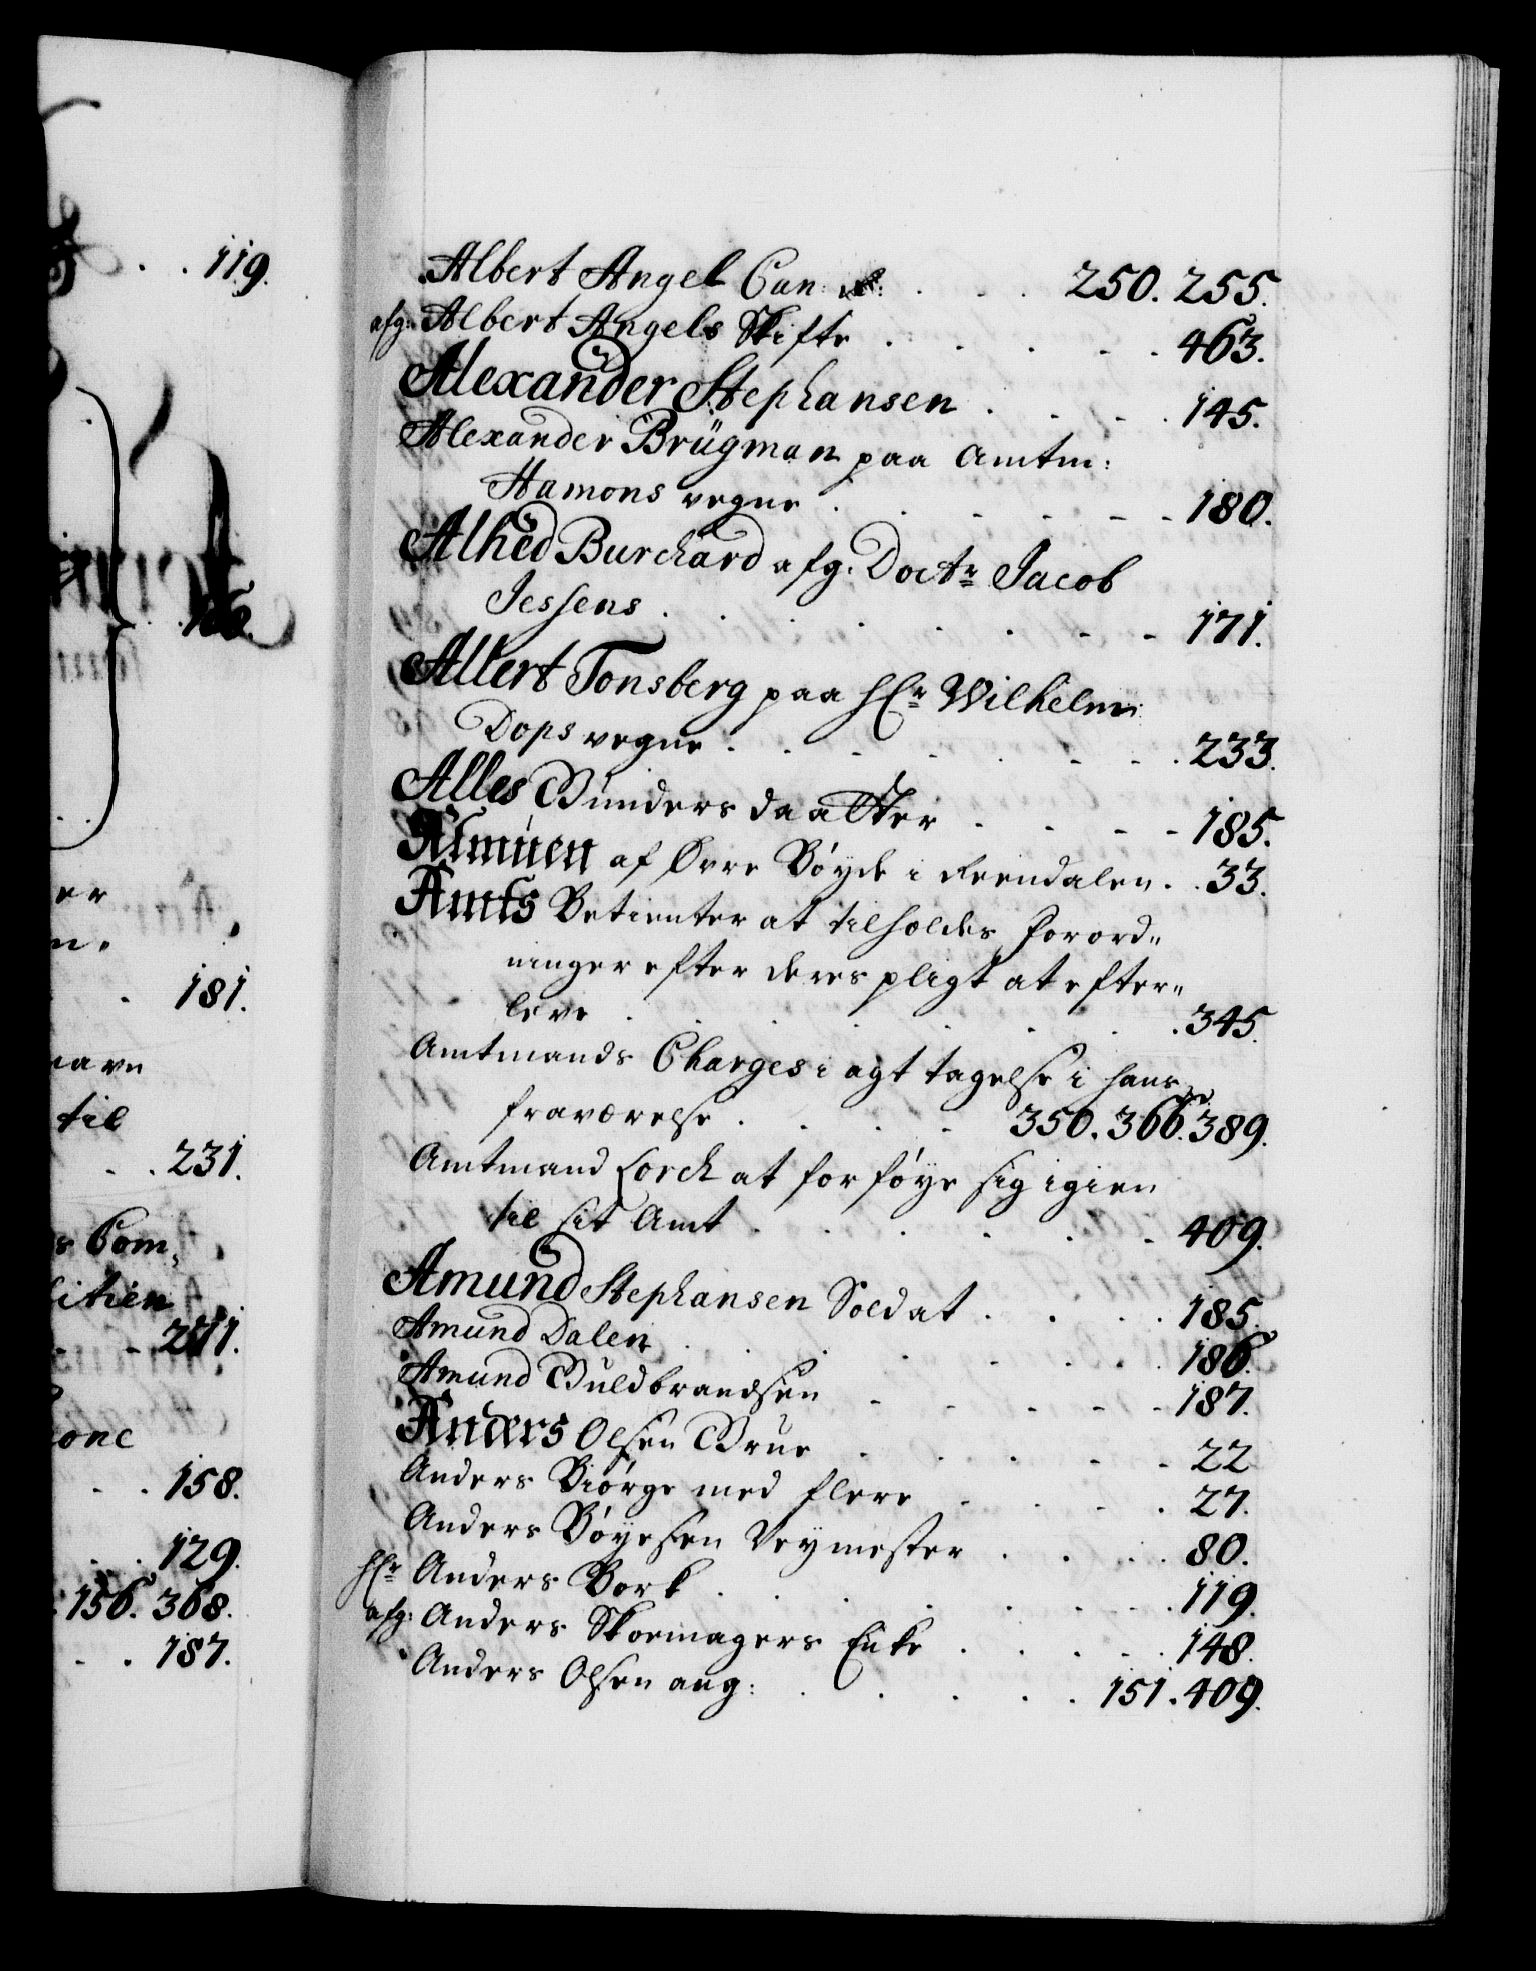 119.
181.
til
231.
Com,
211.
158.
129.
156. 368.
187.
Albert Angel Can: . . . 250. 255.
afg: Albert Angels Skifte . . . . . 463.
Alexander Stephansen . . . . 145.
Alexander Brügman paa Amtm:
Hamons vegne . . . . . . 180.
Alhed Burchard afg: Doctr Jacob
Jessens . . . . . . . 171.
Allert Tonsberg paa Hr Wilhelm
Dops vegne . . . . . . . 233.
Alles Gunders daatter . . . . 185.
Almuen af Øvre Bøyde i Reendalen . . 33.
Amts Betienter at tilholdes forord„
ninger efter deres pligt at efter„
leve . . . . . . . 345.
Amtmands Charges i agt tagelse i hans
fraværelse . . . . 350. 366. 389.
Amtmand Lorch at forføye sig igien
til sit Amt . . . . . . 409.
Amund Stephansen Soldat . . . . 185.
Amund Dalen . . . . . . . 186.
Amund Guldbrandsen . . . . . 187.
Anders Olsen Brue . . . . . 22
Anders Biørge med flere . . . . 27.
Anders Bøyesen Veymester . . . . 80.
Hr Anders Bork . . . . . . 119.
afg: Anders Skoemagers Enke . . . . 148.
Anders Olsen ang: . . . . . 151. 409.